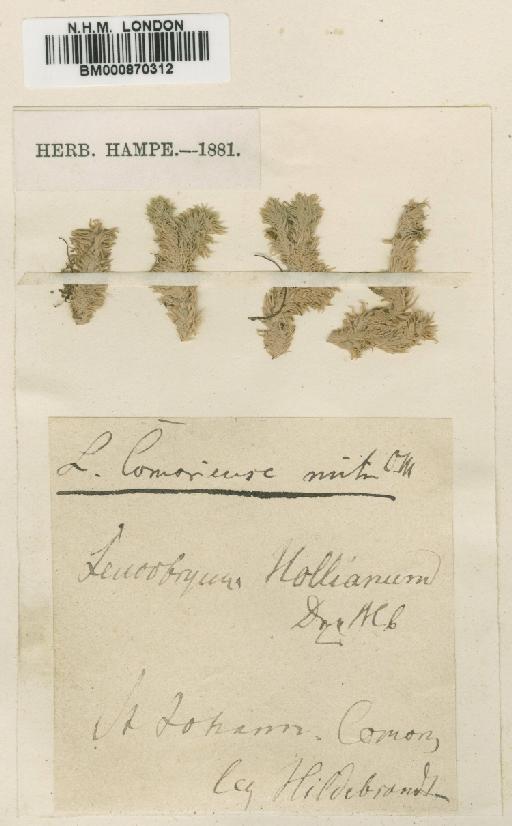 N.H.M. LONDON
BM000870312
HERB. HAMPE.—1881.
L. Comoriense mihi CM
Leucobryum Hollianum
Dzy Mlb
St Johann. Comor,
leg Hildebrandt